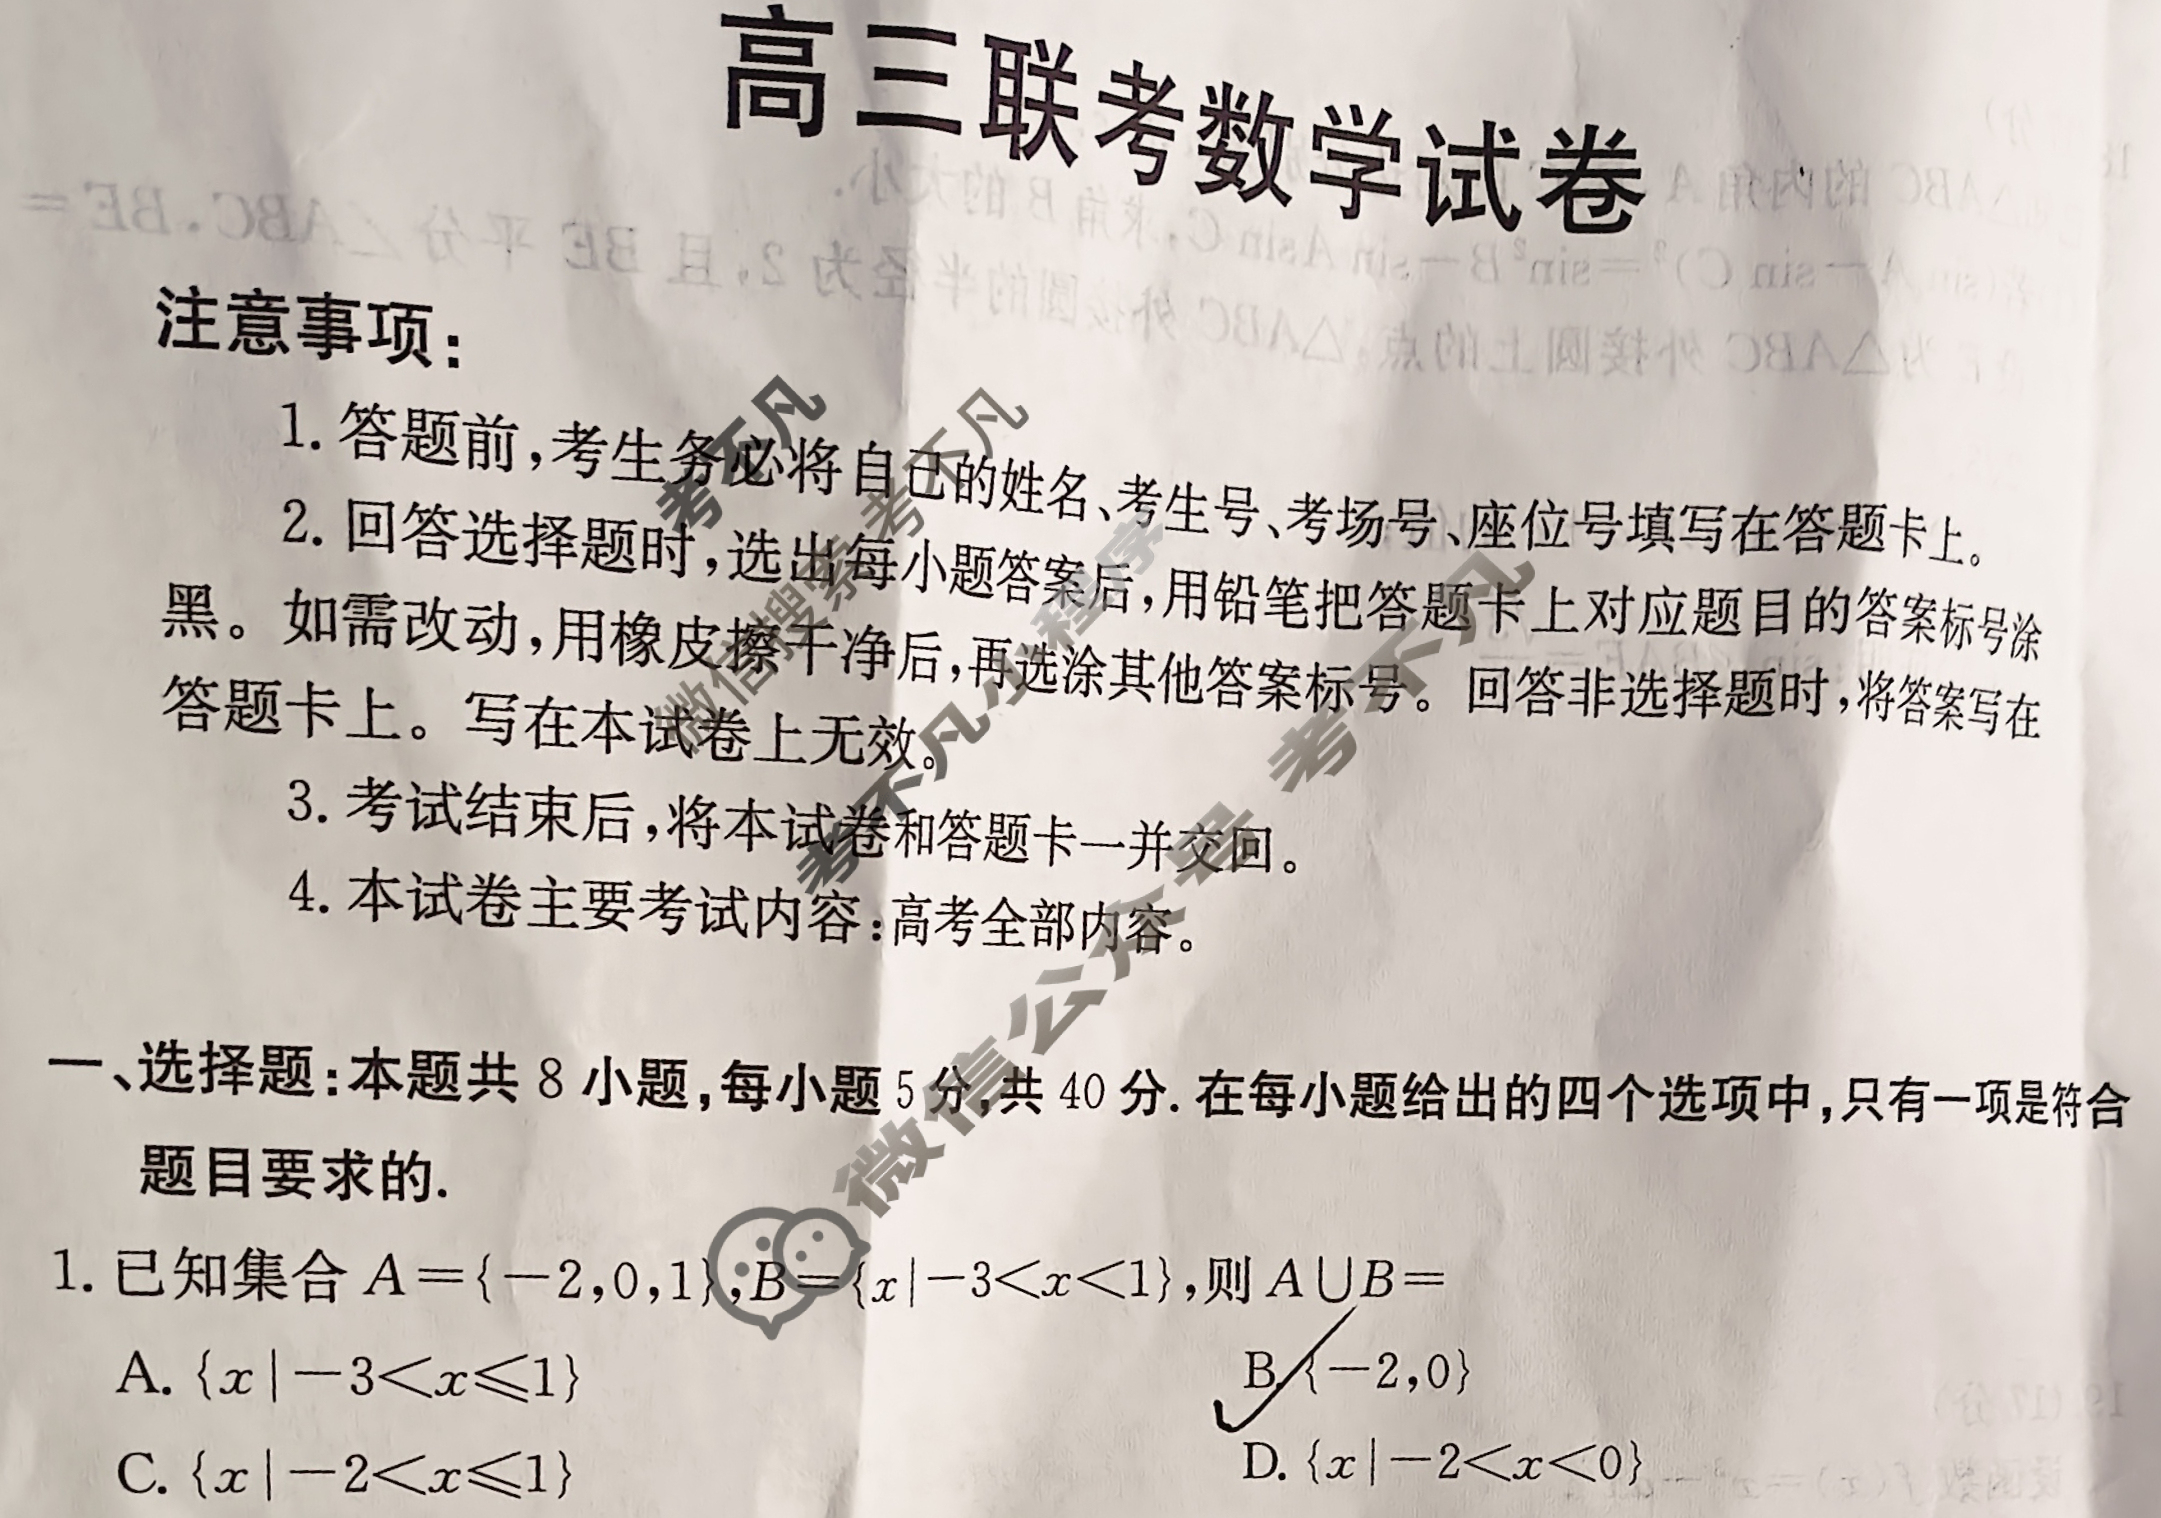 高三联考数学试卷
注意事项:
1. 答题前,考生务必将自己的姓名、考生号、考场号、座位号填写在答题卡上。
2. 回答选择题时,选出每小题答案后,用铅笔把答题卡上对应题目的答案标号涂
黑。如需改动,用橡皮擦干净后,再选涂其他答案标号。回答非选择题时,将答案写在
答题卡上。写在本试卷上无效。
3. 考试结束后,将本试卷和答题卡一并交回。
4. 本试卷主要考试内容:高考全部内容。
考不凡
微信搜索 考不凡
考不凡小程序
微信公众号 考不凡
一、选择题:本题共 8 小题,每小题 5 分,共 40 分. 在每小题给出的四个选项中,只有一项是符合
题目要求的.
1. 已知集合 A={-2,0,1},B={x|-3<x<1},则 A∪B=
A. {x|-3<x≤1} B. {-2,0}
C. {x|-2<x≤1} D. {x|-2<x<0}